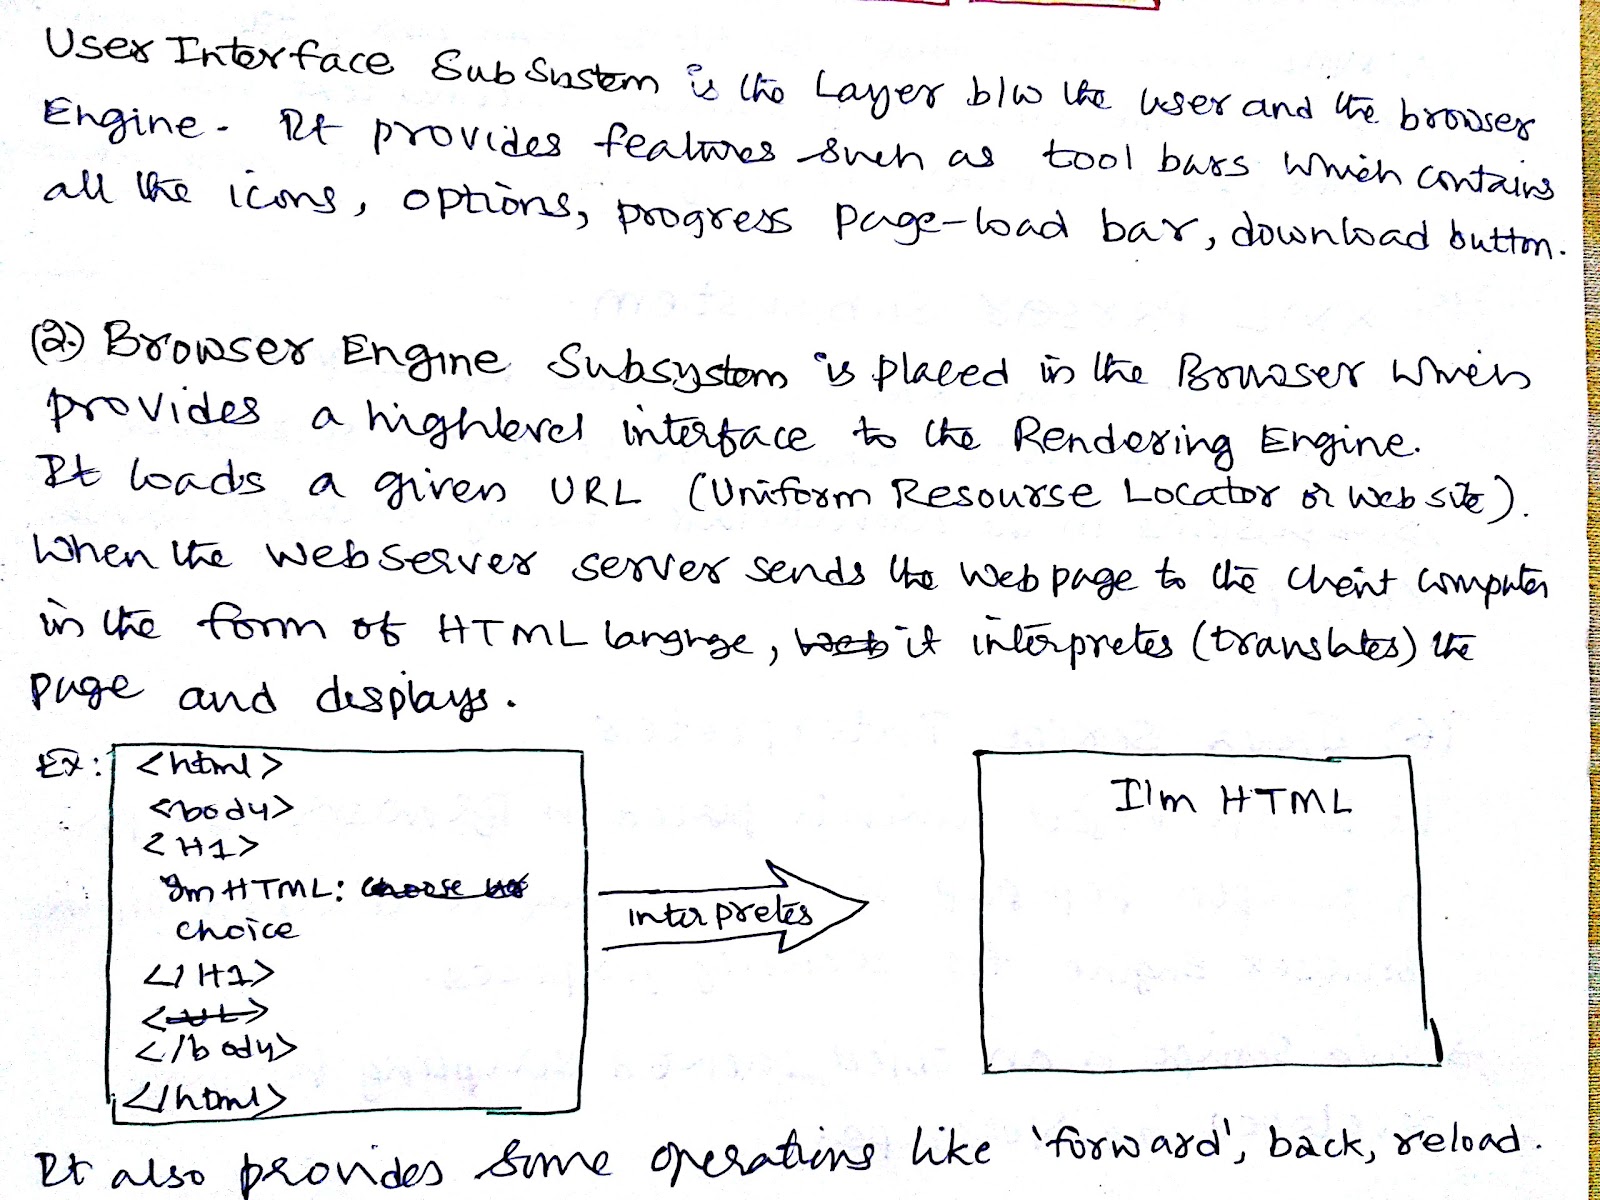 User Interface SubSystem is the Layer b/w the user and the browser
Engine. It provides features such as tool bars which contains
all the icons, options, progress page-load bar, download button.
(2.) Browser Engine Subsystem is placed in the Browser which
provides a highlevel interface to the Rendering Engine.
It loads a given URL (Uniform Resourse Locator or web site).
When the webserver server sends the web page to the client computer
in the form of HTML langnge, web it interpretes (translates) the
page and displays.
Ex: <html>
<body>
<H1>
I'm HTML: choose
choice
</H1>
<UL>
</body>
</html>
interpretes
I'm HTML
It also provides some operations like 'forward', back, reload.